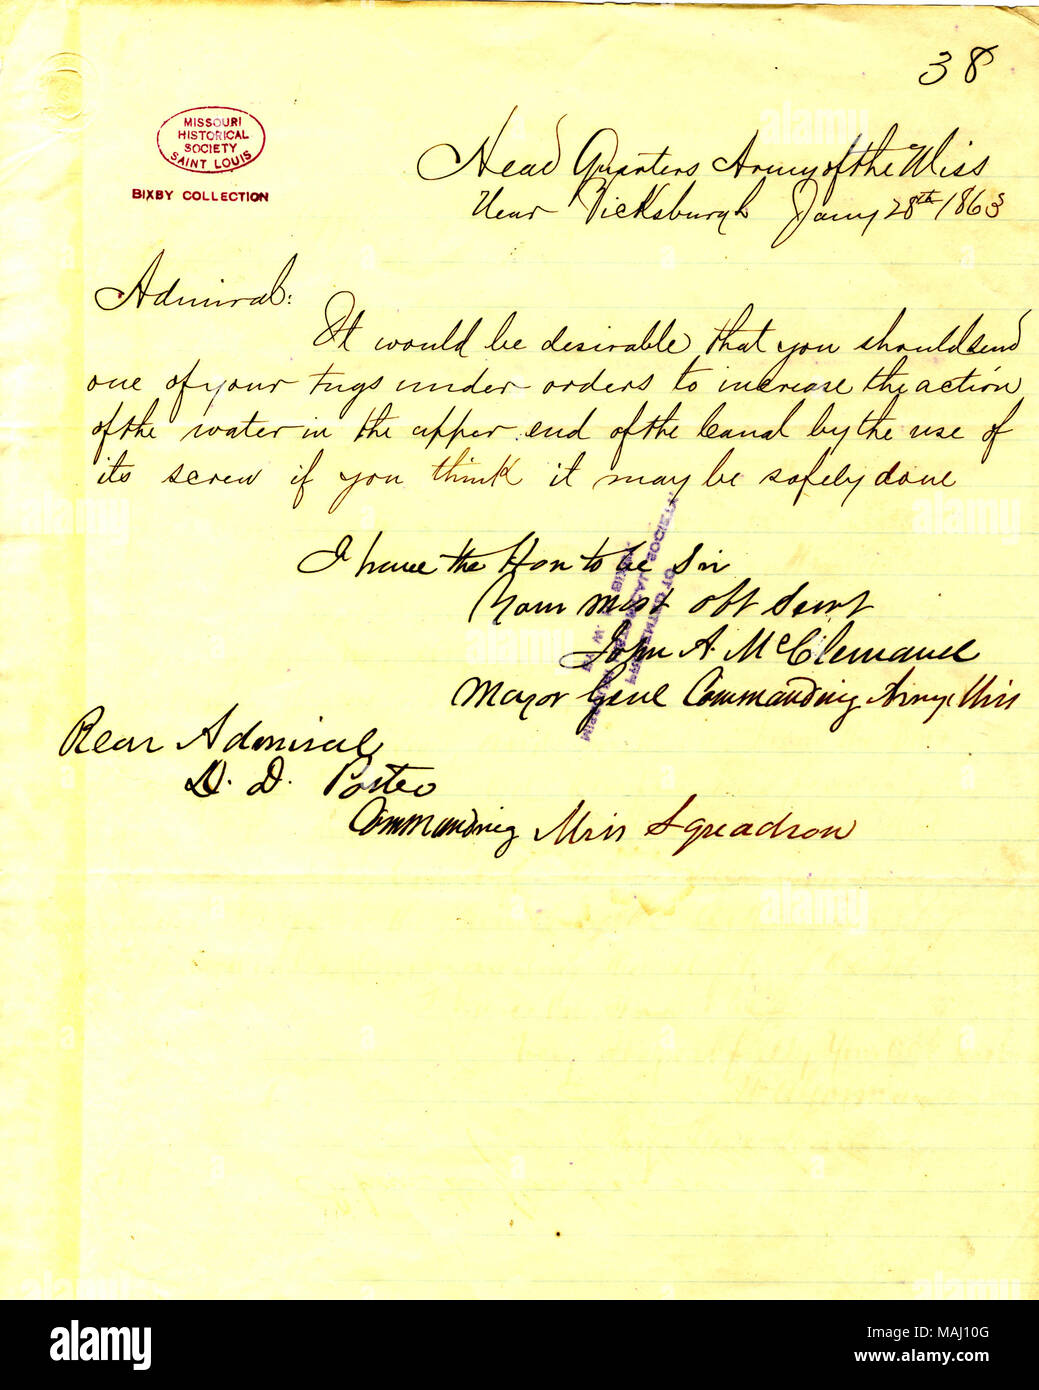 38
MISSOURI
HISTORICAL
SOCIETY
SAINT LOUIS
BIXBY COLLECTION
Head Quarters Army of the Miss
Near Vicksburgh Jany 28th 1863
Admiral:
It would be desirable that you should send
one of your tugs under orders to increase the action
of the water in the upper end of the Canal by the use of
its screw if you think it may be safely done
I have the Hon to be Sir
Your most obt Servt
John A. McClernand
Major Genl Commanding Army Miss
Rear Admiral
D. D. Porter
Commanding Miss Squadron
alamy
Image ID: MAJ10G
www.alamy.com